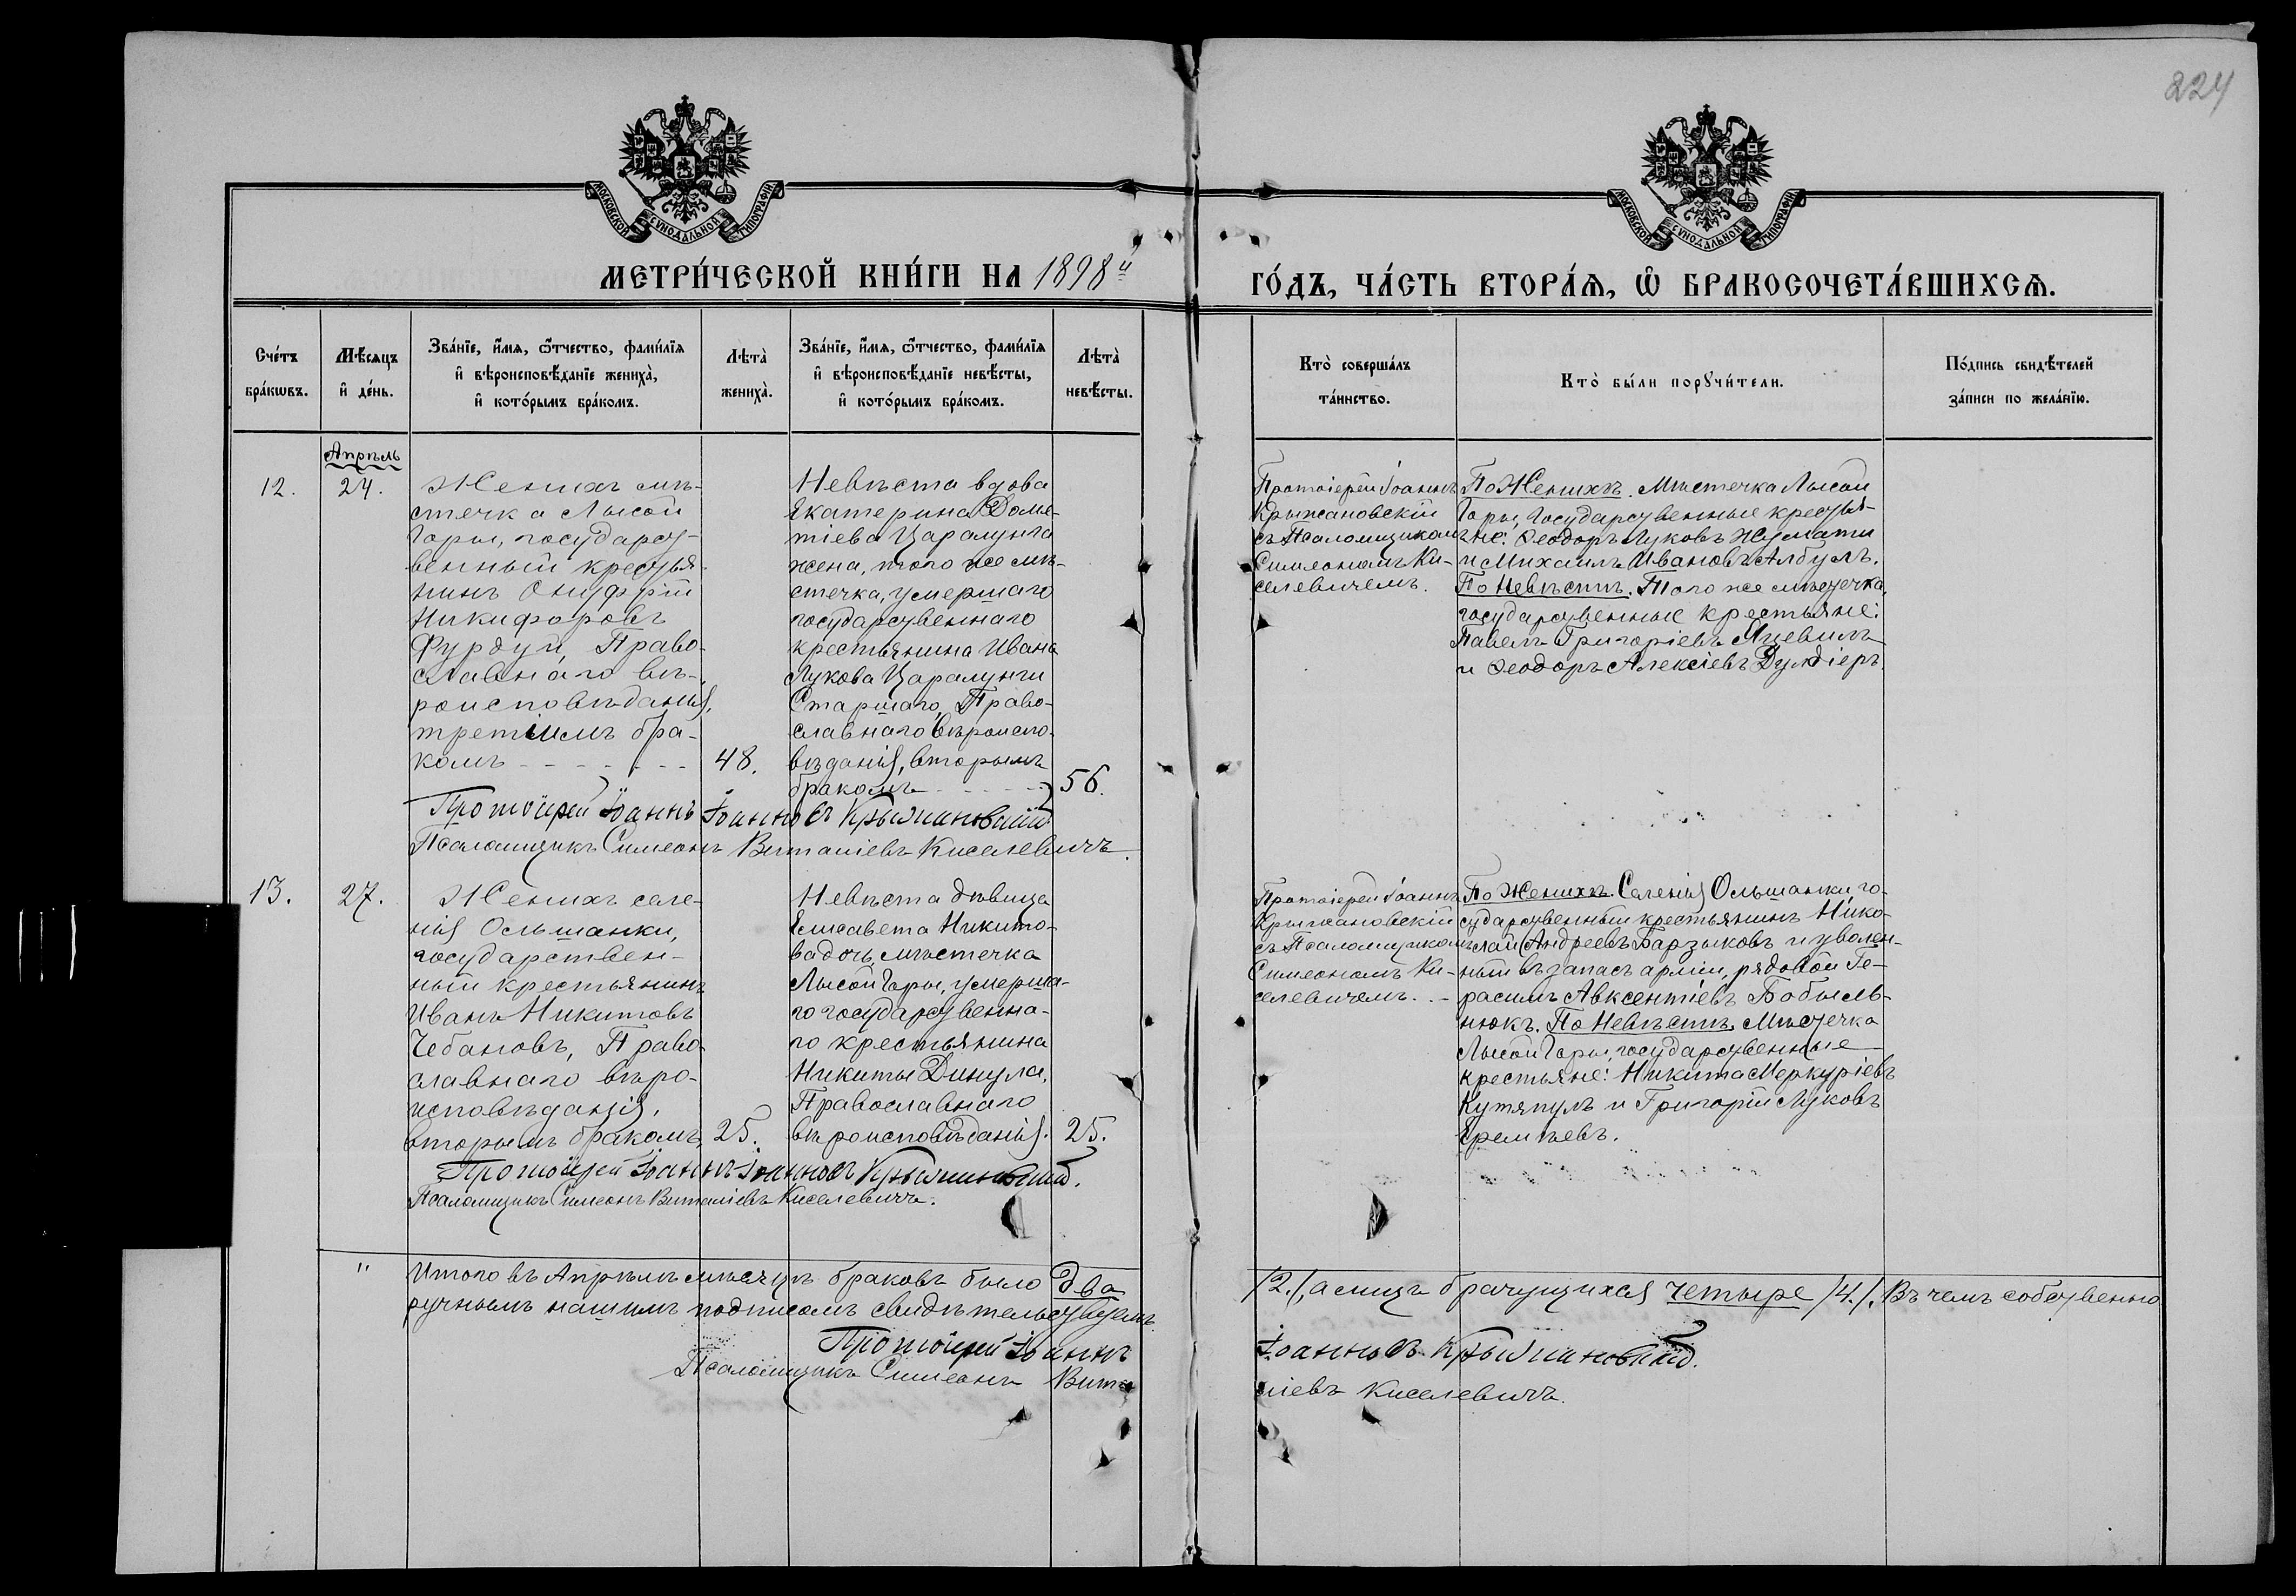 224
МОСКОВСКОЙ СѴНОДАЛЬНОЙ ТИПОГРАФІИ
МОСКОВСКОЙ СѴНОДАЛЬНОЙ ТИПОГРАФІИ
МЕТРИ́ЧЕСКОЙ КНИ́ГИ НА 1898й
ГО́ДЪ, ЧА́СТЬ ВТОРА́Ѧ, Ѡ҆ БРАКОСОЧЕТА́ВШИХСѦ.
Сче́тъ
бра́кѡвъ.
Мѣ́сяцъ
и҆ де́нь.
Зва́нїе, и҆́мя, ѻ҆́тчество, фами́лїя
и҆ вѣроисповѣ́данїе жениха̀,
и҆ кото́рымъ бра́комъ.
Лѣта̀
жениха̀.
Зва́нїе, и҆́мя, ѻ҆́тчество, фами́лїя
и҆ вѣроисповѣ́данїе невѣ́сты,
и҆ кото́рымъ бра́комъ.
Лѣта̀
невѣ́сты.
Кто̀ соверша́лъ
та́инство.
Кто̀ бы́ли порꙋчи́тели.
По́дпись свидѣ́телей
за́писи по жела́нїю.
Апрѣль
12.
24.
Женихъ мѣ-
стечка Лысой
Горы, государст-
венный крестья-
нинъ Онуфрій
Никифоровъ
Фурдуй, Право-
славнаго вѣ-
роисповѣданія,
третіимъ бра-
комъ - - - - - -
48.
Невѣста вдова
Екатерина Доме-
тіева Царалунга
жена, того же мѣ-
стечка, умершаго
государственнаго
крестьянина Ивана
Лукова Царалунги
Старшаго, Право-
славнаго вѣроиспо-
вѣданія, вторымъ
бракомъ - - - - -
56.
Протоіерей Іоаннъ
Крыжановскій
съ Псаломщикомъ
Симеономъ Ки-
селевичемъ.
По Женихѣ. Мѣстечка Лысой
Горы, Государственные крестья-
не: Ѳеодоръ Луковъ Жумати
и Михаилъ Ивановъ Албулъ.
По Невѣстѣ. Того же мѣстечка,
государственные крестьяне:
Павелъ Григоріевъ Мцевилъ
и Ѳеодоръ Алексіевъ Дулдіеръ.
Протоіерей Іоаннъ Іоанновъ Крыжановскій
Псаломщикъ Симеонъ Виталіевъ Киселевичъ.
13.
27.
Женихъ селе-
нія Ольшанки,
государствен-
ный крестьянинъ
Иванъ Никитовъ
Чебановъ, Право-
славнаго вѣро-
исповѣданія,
вторымъ бракомъ,
25.
Невѣста дѣвица
Елисавета Никито-
ва дочь, мѣстечка
Лысой Горы, умерша-
го государственна-
го крестьянина
Никиты Динула,
Православнаго
вѣроисповѣданія.
25.
Протоіерей Іоаннъ
Крыжановскій
съ Псаломщикомъ
Симеономъ Ки-
селевичемъ. . -
По Женихѣ. Селенія Ольшанки, го-
сударственный крестьянинъ Нико-
лай Андреевъ Барзыковъ и уволен-
ный въ запасъ арміи, рядовой Ге-
расимъ Авксентіевъ Бобыль-
нюкъ. По Невѣстѣ. Мѣстечка
Лысой Горы, государственные
крестьяне: Никита Меркуріевъ
Кутяпулъ и Григорій Луковъ
Еремѣевъ.
Протоіерей Іоаннъ Іоанновъ Крыжановскій.
Псаломщикъ Симеонъ Виталіевъ Киселевичъ.
" Итого въ Апрѣлѣ мѣсяцѣ браковъ было два /2./, а лицъ брачущихся четыре /4./. Въ чемъ собственно
ручнымъ нашимъ подписомъ свидѣтельствуемъ.
Протоіерей Іоаннъ Іоанновъ Крыжановскій.
Псаломщикъ Симеонъ Виталіевъ Киселевичъ.